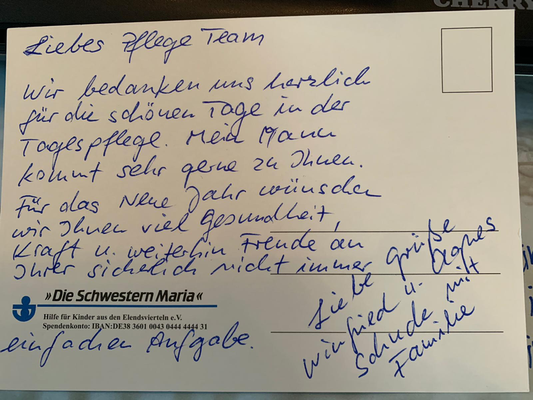 CHERRY
Liebes Pflege Team
Wir bedanken uns herzlich
für die schönen Tage in der
Tagespflege. Mein Mann
kommt sehr gerne zu Ihnen.
Für das Neue Jahr wünschen
wir Ihnen viel Gesundheit,
Kraft u. weiterhin Freude an
Ihrer sicherlich nicht immer
»Die Schwestern Maria«
Hilfe für Kinder aus den Elendsvierteln e.V.
Spendenkonto: IBAN:DE38 3601 0043 0444 4444 31
einfachen Aufgabe.
Liebe Grüße
Winfried u. Agnes
Schude mit
Familie